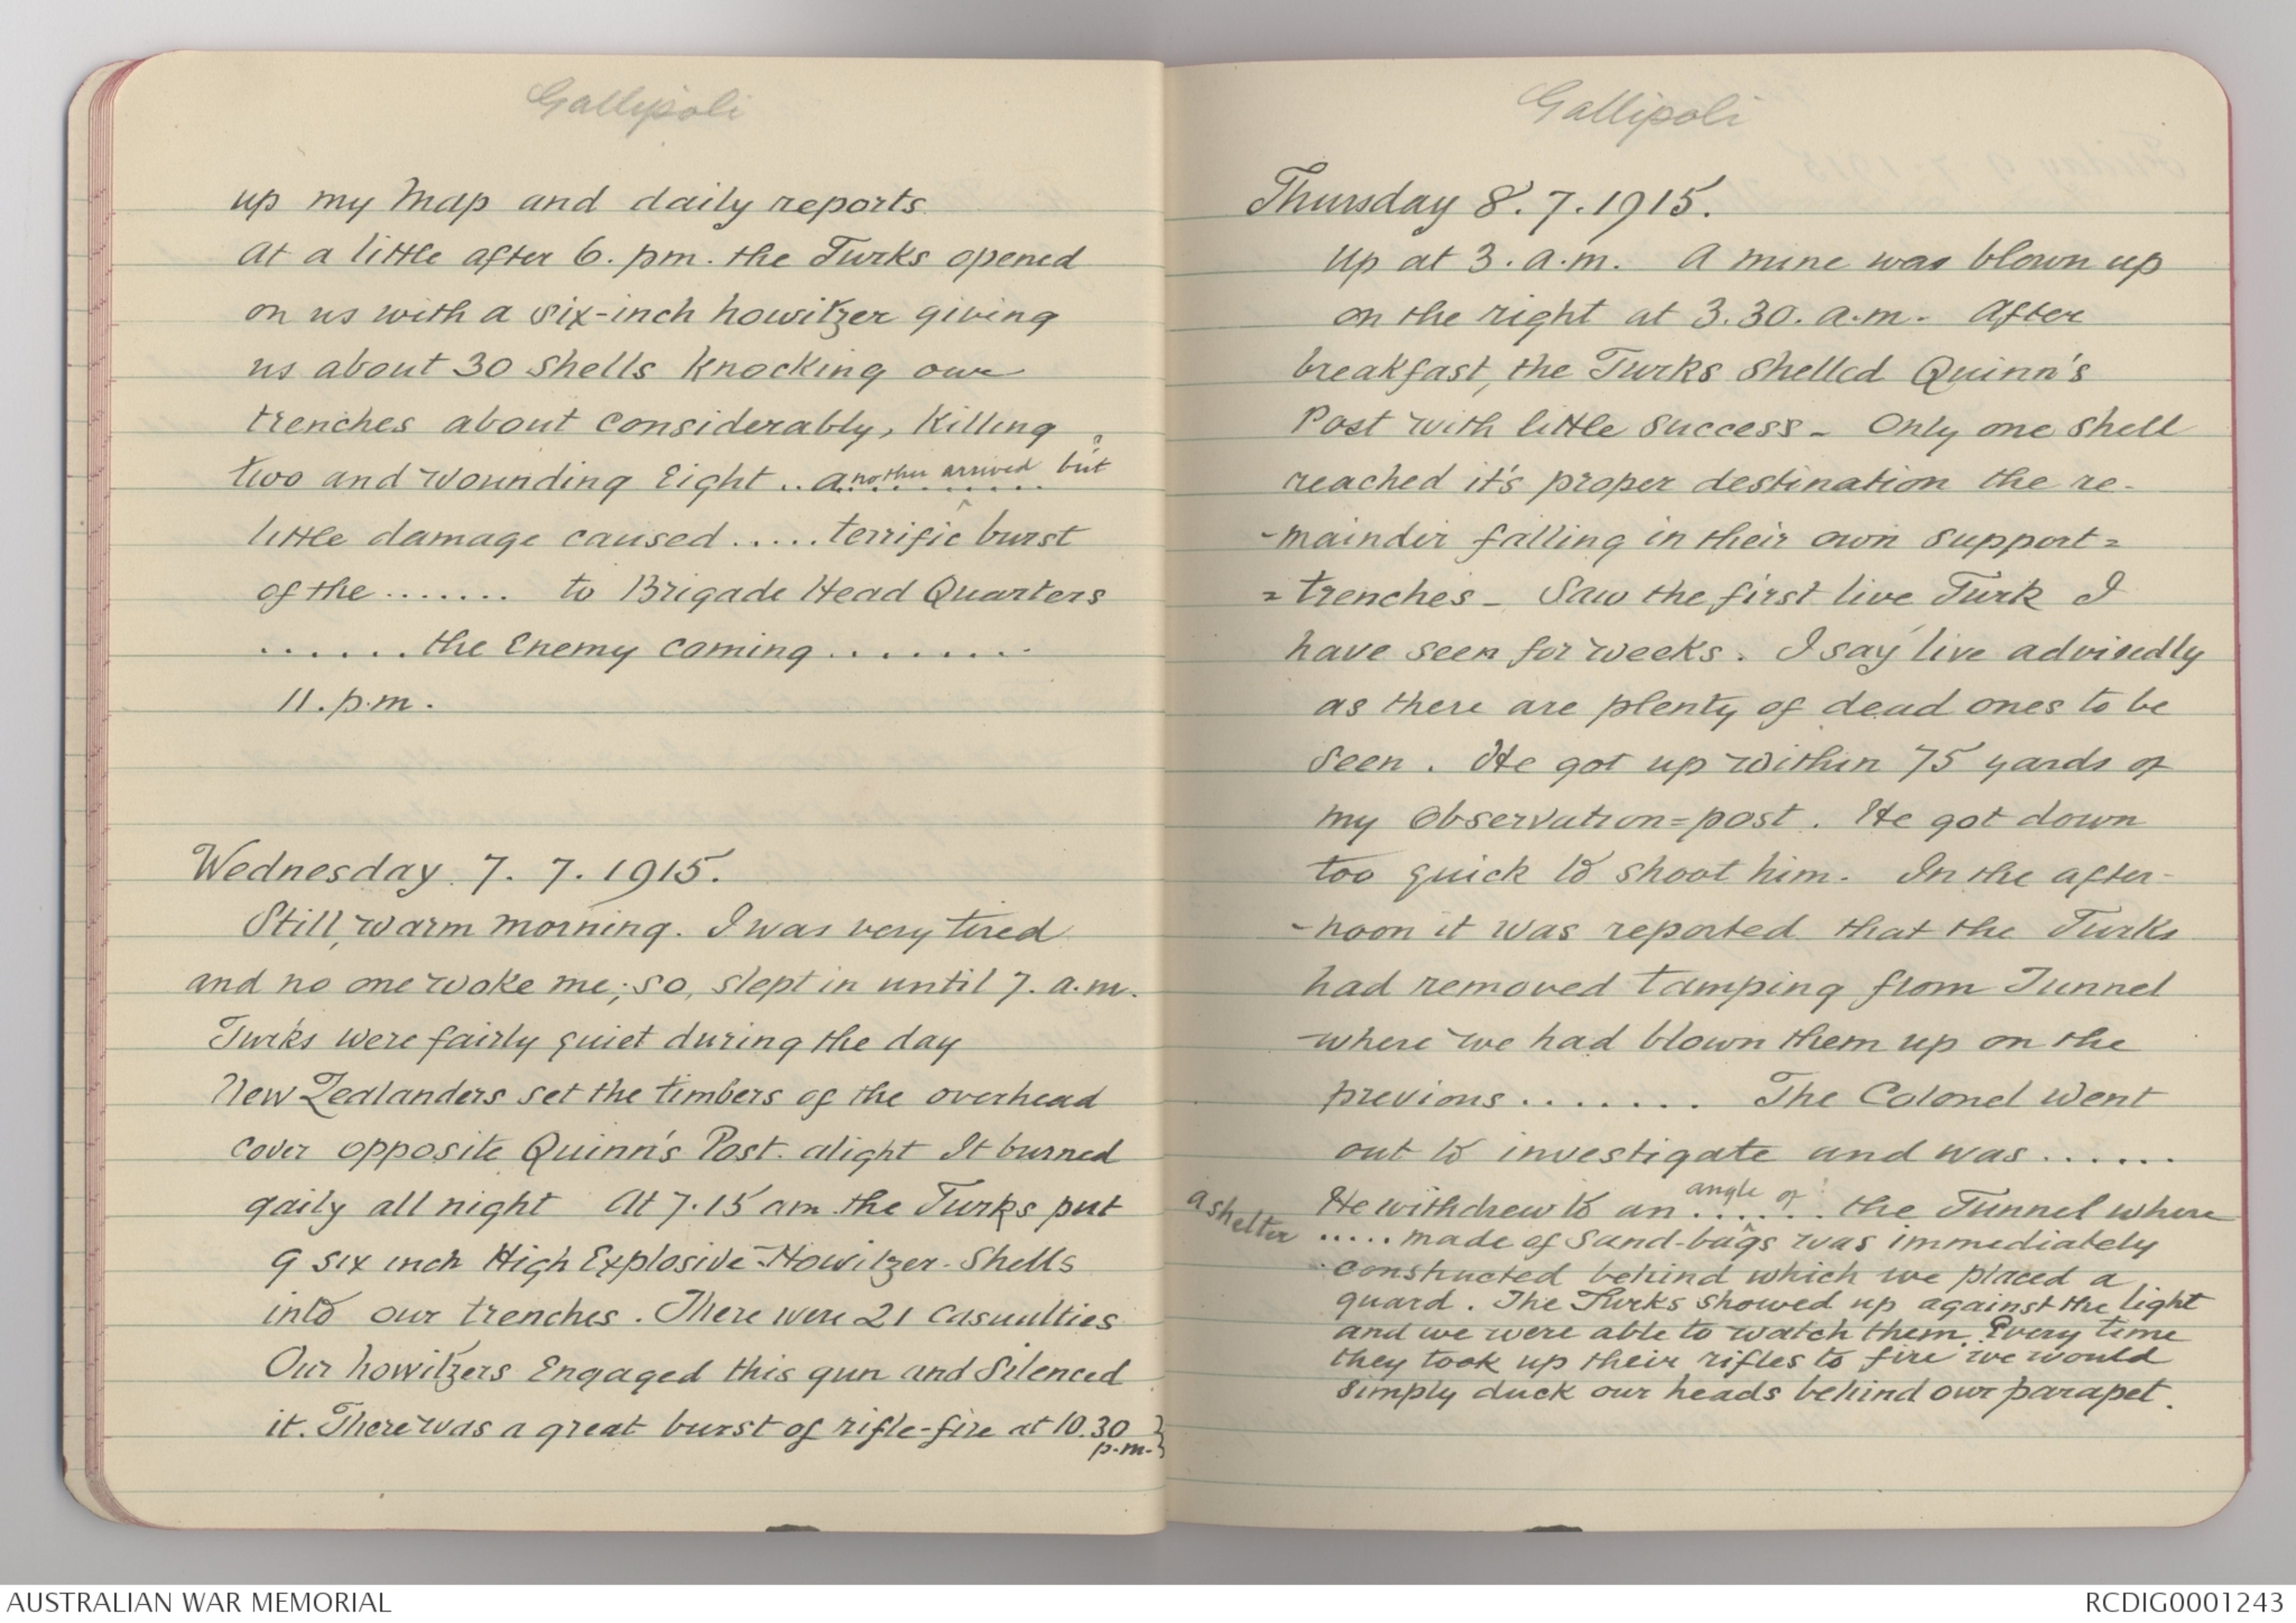 Gallipoli
up my map and daily reports
at a little after 6. pm. the Turks opened
on us with a six-inch howitzer giving
us about 30 shells knocking our
trenches about considerably, killing
two and wounding Eight .. another arrived but ?
little damage caused ..... terrific burst
of the ....... to Brigade Head Quarters
...... the Enemy coming .........
11. p.m.
Wednesday. 7. 7. 1915.
Still, warm morning. I was very tired
and no one woke me; so, slept in until 7. a.m.
Turks were fairly quiet during the day
New Zealanders set the timbers of the overhead
cover opposite Quinn's Post. alight It burned
gaily all night At 7.15 am the Turks put
9 six inch High Explosive-Howitzer-Shells
into our trenches. There were 21 casualties
Our howitzers Engaged this gun and Silenced
it. There was a great burst of rifle-fire at 10.30 }
p.m. }
Gallipoli
Thursday 8. 7. 1915.
Up at 3. a.m. A mine was blown up
on the right at 3.30. a.m. After
breakfast, the Turks shelled Quinn's
Post with little success - Only one shell
reached it's proper destination the re-
-mainder falling in their own support=
=trenches - Saw the first live Turk I
have seen for weeks. I say live advisedly
as there are plenty of dead ones to be
seen. He got up within 75 yards of
my Observation=post. He got down
too quick to shoot him. In the after-
-noon it was reported that the Turks
had removed tamping from Tunnel
where we had blown them up on the
previous ....... The Colonel went
out to investigate and was ......
He withdrew to an angle of ...... the Tunnel where
a shelter ..... made of Sand-bags was immediately
constructed behind which we placed a
guard. The Turks showed up against the light
and we were able to watch them. Every time
they took up their rifles to fire we would
simply duck our heads behind our parapet.
AUSTRALIAN WAR MEMORIAL
RCDIG0001243